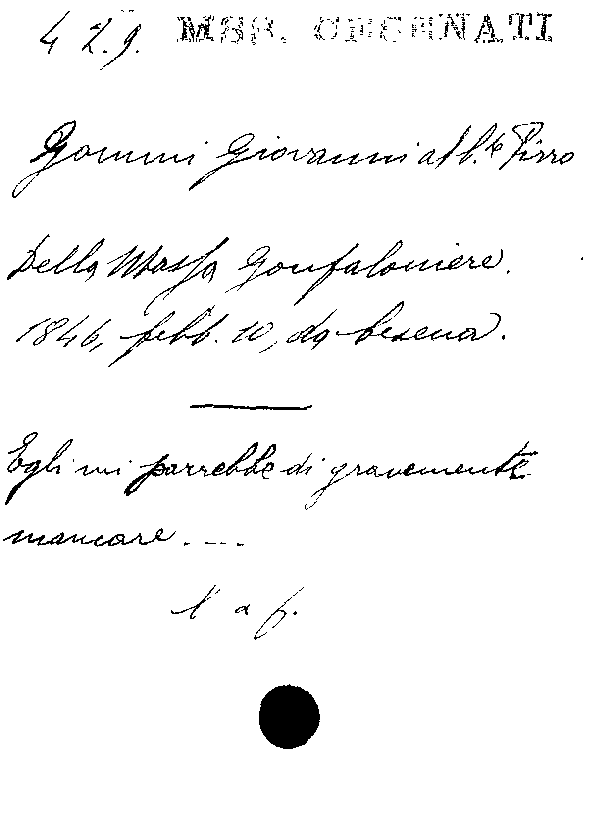 429. MSS. CESENATI
Gommi Giovanni al C.te Pirro
Della Massa Gonfaloniere.
1846, febb. 10, da Cesena.
Egli mi parrebbe di gravemente
mancare. ---
l. a f.